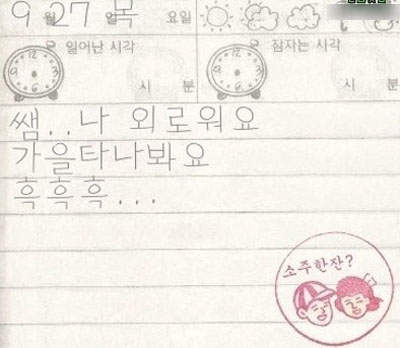 9월 27일 목요일
일어난 시각 잠자는 시각
시 분 시 분
쌤.. 나 외로워요
가을타나봐요
흑흑흑...
소주한잔?